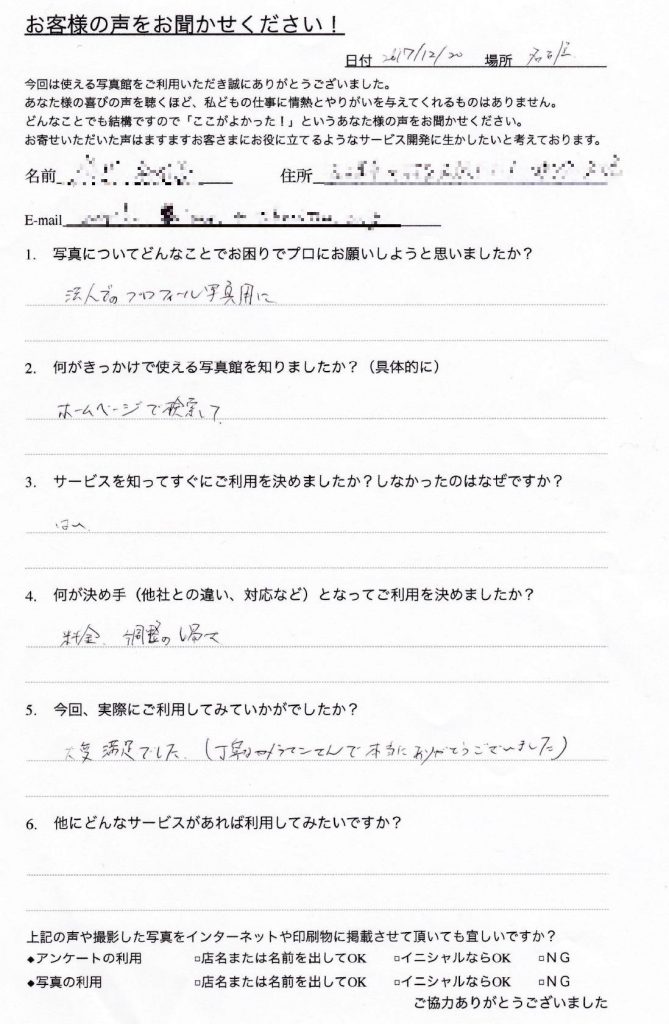 お客様の声をお聞かせください！
日付 2017/12/20 場所 名古屋
今回は使える写真館をご利用いただき誠にありがとうございました。
あなた様の喜びの声を聴くほど、私どもの仕事に情熱とやりがいを与えてくれるものはありません。
どんなことでも結構ですので「ここがよかった！」というあなた様の声をお聞かせください。
お寄せいただいた声はますますお客さまにお役に立てるようなサービス開発に生かしたいと考えております。
名前 住所
E-mail
1. 写真についてどんなことでお困りでプロにお願いしようと思いましたか？
法人でのプロフィール写真用に
2. 何がきっかけで使える写真館を知りましたか？（具体的に）
ホームページで検索して
3. サービスを知ってすぐにご利用を決めましたか？しなかったのはなぜですか？
はい
4. 何が決め手（他社との違い、対応など）となってご利用を決めましたか？
料金、調整の
5. 今回、実際にご利用してみていかがでしたか？
大変満足でした。（カメラマンさんで本当にありがとうございました）
6. 他にどんなサービスがあれば利用してみたいですか？
上記の声や撮影した写真をインターネットや印刷物に掲載させて頂いても宜しいですか？
◆アンケートの利用 □店名または名前を出してOK □イニシャルならOK □ＮＧ
◆写真の利用 □店名または名前を出してOK □イニシャルならOK □ＮＧ
ご協力ありがとうございました